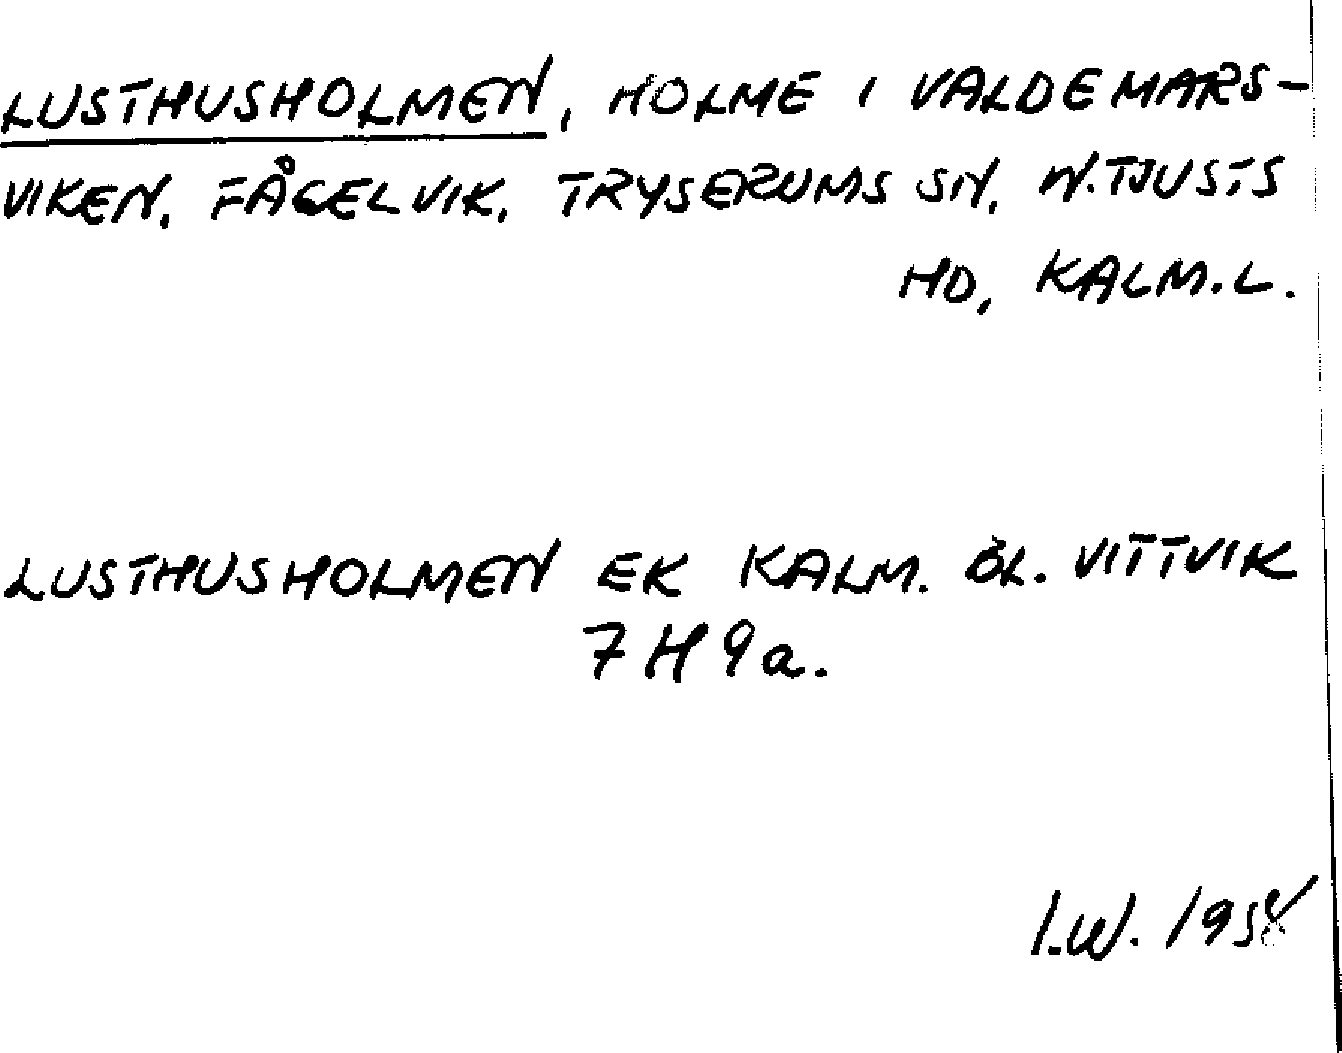 LUSTHUSHOLMEN, HOLME I VALDEMARS-
VIKEN, FÅGELVIK, TRYSERUMS SN, N.TJUSTS
HD, KALM.L.
LUSTHUSHOLMEN EK KALM. BL. VITTVIK
7H9a.
I.W. 1958